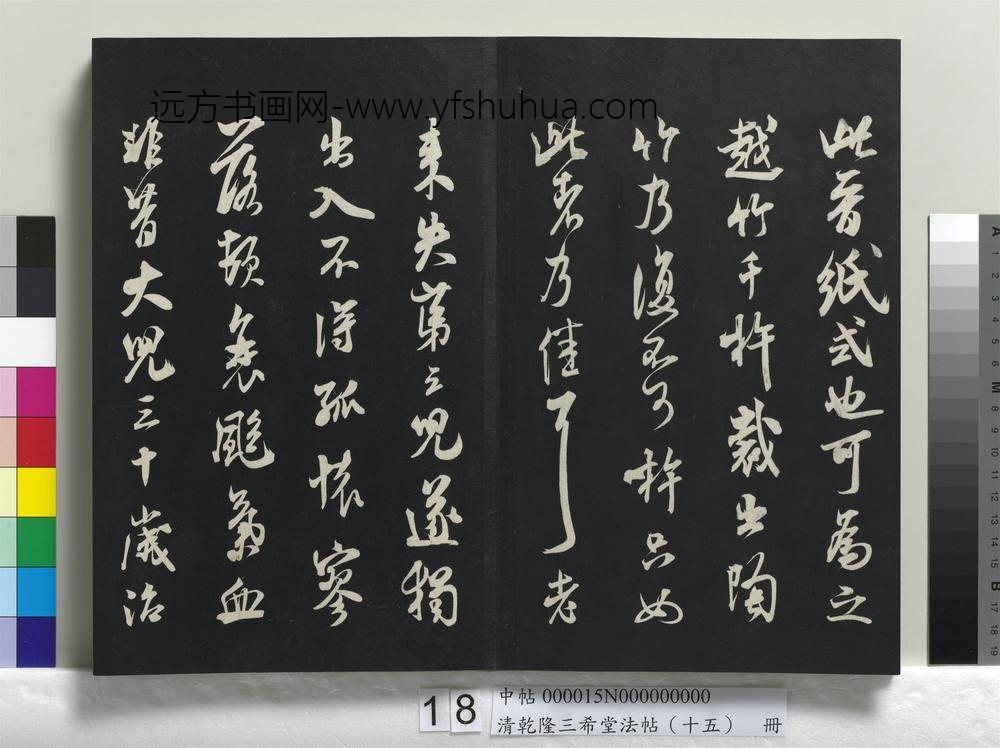 远方书画网-www.yfshuhua.com
此晋紙式也可為之
越竹千杵裁出陶
竹乃復不可杵只如
此者乃佳耳老
来失第三兒遂獨
出入不得孤懷寥
落頓衰颩氣血
非昔大兒三十歲治
18
中帖 000015N000000000
清乾隆三希堂法帖（十五） 冊
A 1 2 3 4 5 6 M 8 9 10 11 12 13 14 15 B 17 18 19